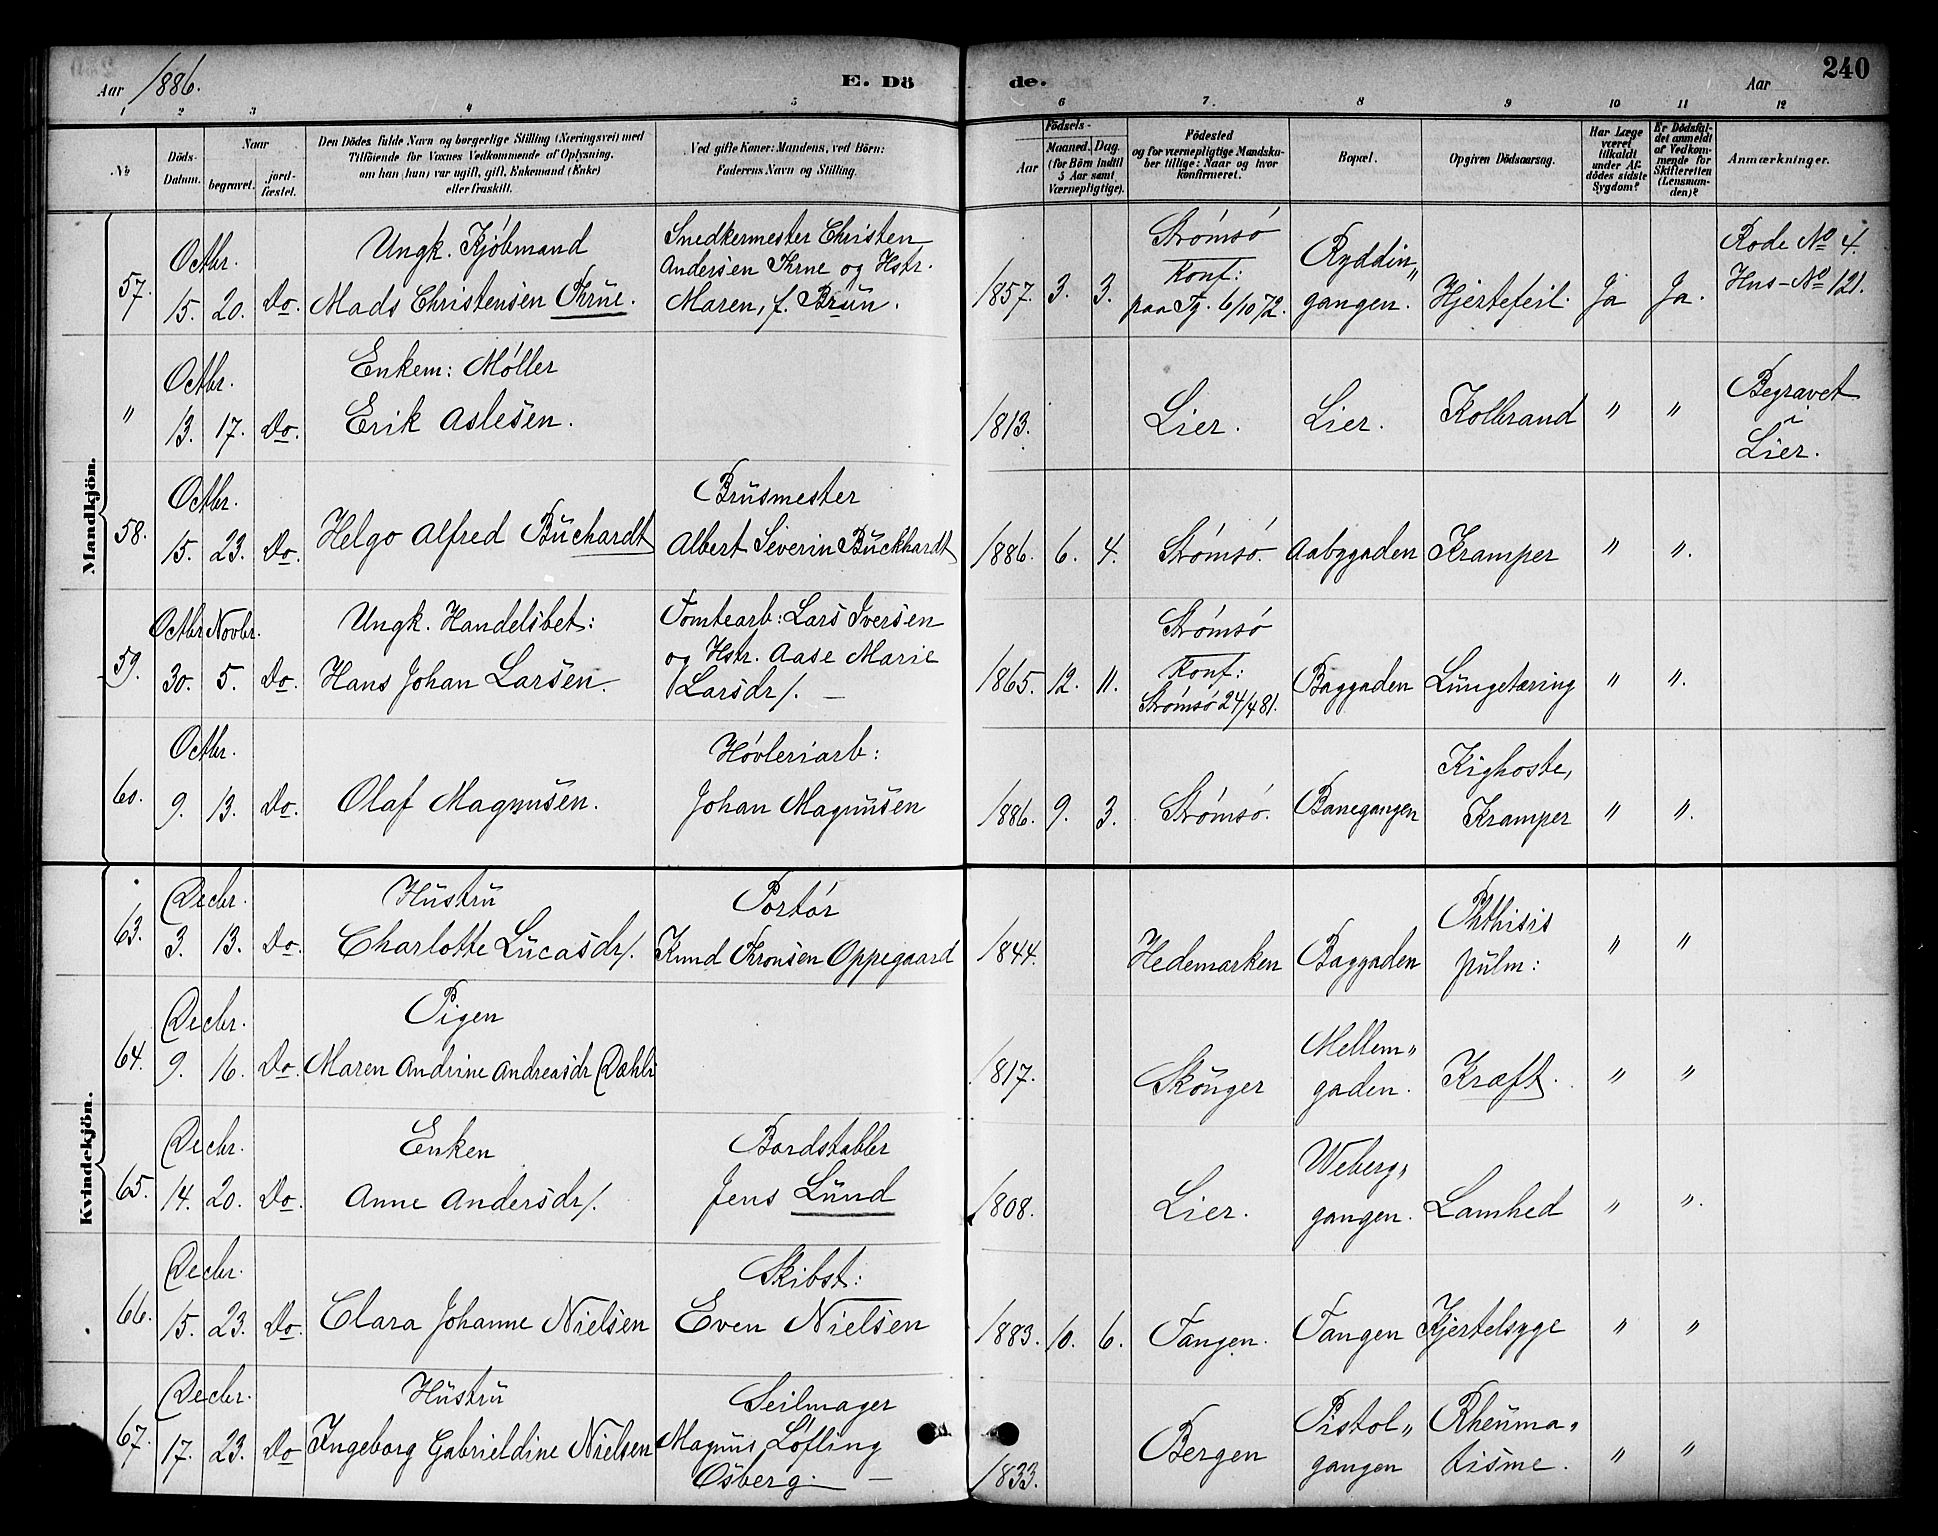 Aar 1886. E. Dö de. Aar 240
1 2 3 4 5 6 7. 8 9 10 11 12
No
Döds-
Datum.
Naar
begravet.
jord-
fæstet.
Den Dödes fulde Navn og borgerlige Stilling (Næringsvei) med
Tilföiende for Voxnes Vedkommende af Oplysning,
om han (hun) var ugift, gift, Enkemand (Enke)
eller fraskilt.
Ved gifte Koner: Mandens, ved Börn:
Faderens Navn og Stilling.
Födsels-
Aar
Maaned. Dag.
(for Börn indtil
5 Aar samt
Værnepligtige).
Födested
og for værnepligtige Mandska-
ber tillige: Naar og hvor
konfirmeret.
Bopæl.
Opgiven Dödsaarsag.
Har Læge
været
tilkaldt
under Af-
dödes sidste
Sygdom?
Er Dödsfal-
det anmeldt
af Vedkom-
mende for
Skifteretten
(Lensman-
den)?
Anmærkninger.
Mandkjön.
57.
Octbr.
15. 20. Do.
Ungk. Kjøbmand
Mads Christensen Thrue.
Snedkermester Christen
Andersen Thrue og Hstr.
Maren, f. Brun.
1857. 3. 3.
Strømsø
Konf:
paa Tg. 6/10 72.
Ryddin"
gangen.
Hjertefeil. Ja Ja.
Rode No 4.
Hus-No 121.
"
Octbr.
13. 17. Do.
Enkem: Møller
Erik Aslesen.
1813. Lier. Lier. Koldbrand " "
Begravet
i
Lier.
58.
Octbr.
15. 23. Do.
Helgo Alfred Buchardt
Brusmester
Albert Severin Buckhardt
1886. 6. 4. Strømsø. Aabygaden Kramper " ".
59.
Octbr. Novbr.
30. 5. Do.
Ungk. Handelsbet:
Hans Johan Larsen.
Tomtearb: Lars Iversen
og Hstr. Aase Marie
Larsdr/. –
1865. 12. 11.
Strømsø
Konf:
Strømsø 24/4 81.
Baggaden Lungetæring " ".
60.
Octbr.
9. 13. Do.
Olaf Magnusen.
Høvleriarb:
Johan Magnusen
1886. 9. 3. Strømsø. Banegangen
Kighoste,
Kramper " ".
Kvindekjön.
63.
Decbr.
3. 13. Do.
Hustru
Charlotte Lucasdr/.
Portør
Knud Thronsen Oppegaard
1844. Hedemarken Baggaden
Phthisis
pulm: " "
64.
Decbr.
9. 16. Do.
Pigen
Maren Andrine Andreasdr Dæhli
1817. Skouger
Mellem"
gaden.
Kræft. " "
65.
Decbr.
14. 20. Do.
Enken
Anne Andersdr/.
Bordstabler
Jens Lund
1808. Lier.
Weberg"
gangen.
Lamhed " ".
66.
Decbr.
15. 23. Do.
Clara Johanne Nielsen
Skibst:
Even Nielsen
1883. 10. 6. Tangen. Tangen Kjertelsyge " "
67.
Decbr.
17. 23. Do
Hustru
Ingeborg Gabrieldine Nielsen
Seilmager
Magnus Løfling
Osberg. –
1833. Bergen
Pistol"
gangen
Rheuma"
tisme. " "